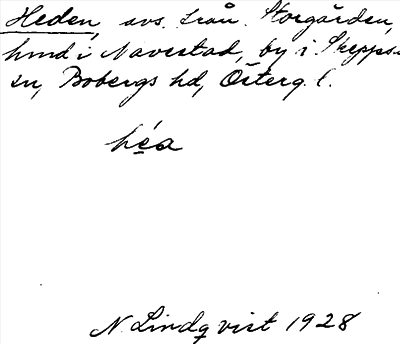 Heden, svs. från Storgården,
hmd i Navestad, by i Skepps-
sn, Bobergs hd, Österg. l.
héa
N. Lindqvist 1928